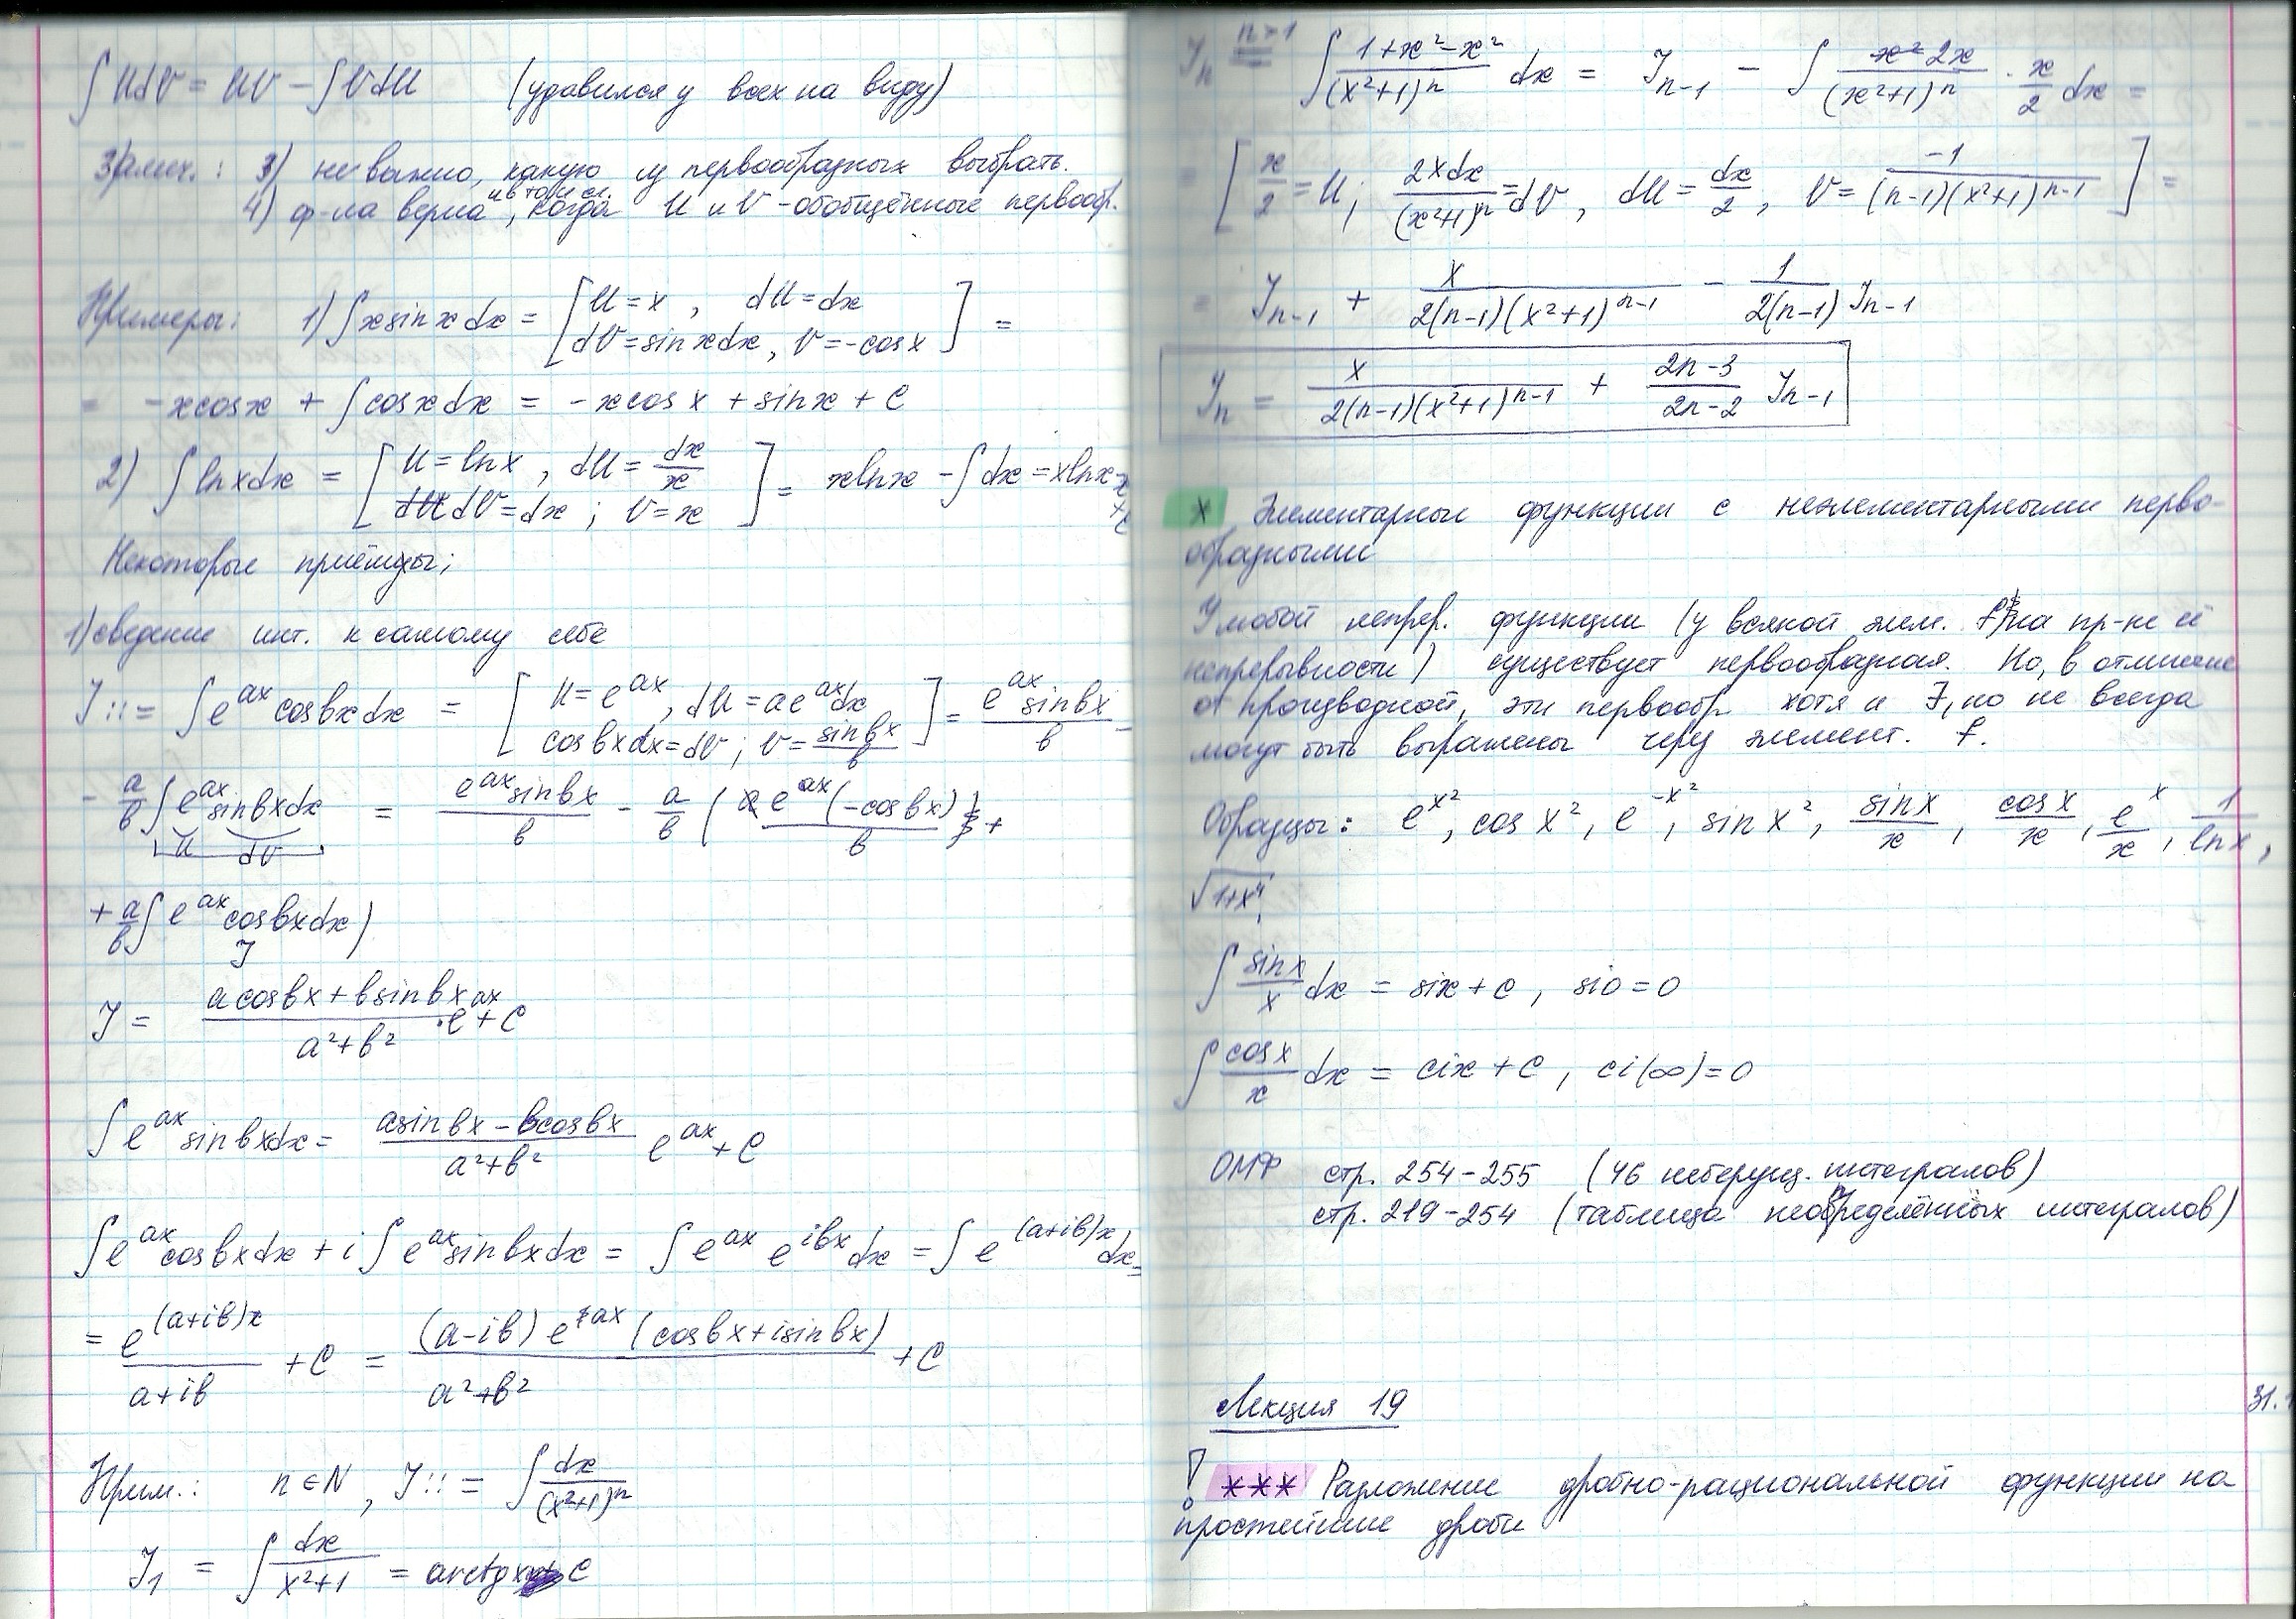 ∫UdV = UV − ∫VdU (удавился у всех на виду)
Замеч.: 3) не важно, какую из первообразных выбрать.
4) ф-ла верна и в том сл., когда U и V - обобщённые первообр.
Примеры: 1) ∫x sin x dx = [U = x, dU = dx
dV = sin x dx, V = -cos x] =
= -x cos x + ∫cos x dx = -x cos x + sin x + C
2) ∫ln x dx = [U = ln x, dU = dx/x
dV = dx; V = x] = x ln x - ∫dx = x ln x - x
+ C
Некоторые приёмы:
1) сведение инт. к самому себе
J ::= ∫e^{ax} cos bx dx = [U = e^{ax}, dU = ae^{ax}dx
cos bx dx = dV; V = sin bx / b] = e^{ax} sin bx / b −
− a/b ∫e^{ax} sin bx dx = e^{ax} sin bx / b − a/b (e^{ax}(−cos bx) / b +
U dV
+ a/b ∫e^{ax} cos bx dx)
J
J = (a cos bx + b sin bx)/(a²+b²) · e^{ax} + C
∫e^{ax} sin bx dx = (a sin bx − b cos bx)/(a²+b²) e^{ax} + C
∫e^{ax} cos bx dx + i∫e^{ax} sin bx dx = ∫e^{ax} e^{ibx} dx = ∫e^{(a+ib)x} dx =
= e^{(a+ib)x}/(a+ib) + C = (a−ib) e^{ax} (cos bx + i sin bx)/(a²+b²) + C
Прим.: n ∈ N, J ::= ∫dx/(x²+1)^n
J₁ = ∫dx/(x²+1) = arctg x + C
J_n = (n>1) ∫(1+x²−x²)/(x²+1)^n dx = J_{n-1} − ∫ 2x/(x²+1)^n · x/2 dx =
= [x/2 = U; 2xdx/(x²+1)^n = dV, dU = dx/2, V = −1/((n−1)(x²+1)^{n−1})] =
= J_{n-1} + x/(2(n−1)(x²+1)^{n−1}) − 1/(2(n−1)) J_{n-1}
J_n = x/(2(n−1)(x²+1)^{n−1}) + (2n−3)/(2n−2) J_{n-1}
x Элементарные функции с неэлементарными перво-
образными
У любой непрер. функции (у всякой элем. f) на пр-ке её
непрерывности) существует первообразная. Но, в отличие
от производной, эти первообр. хотя и ∃, но не всегда
могут быть выражены через элемент. f.
Образцы: e^{x²}, cos x², e^{-x²}, sin x², sin x/x, cos x/x, e^x/x, 1/ln x,
√(1+x⁴),
∫sin x/x dx = si x + C, si 0 = 0
∫cos x/x dx = ci x + C, ci(∞) = 0
ОМФ стр. 254-255 (46 неберущ. интегралов)
стр. 219-254 (таблица неопределённых интегралов)
Лекция 19 31.
! *** Разложение дробно-рациональной функции на
простейшие дроби